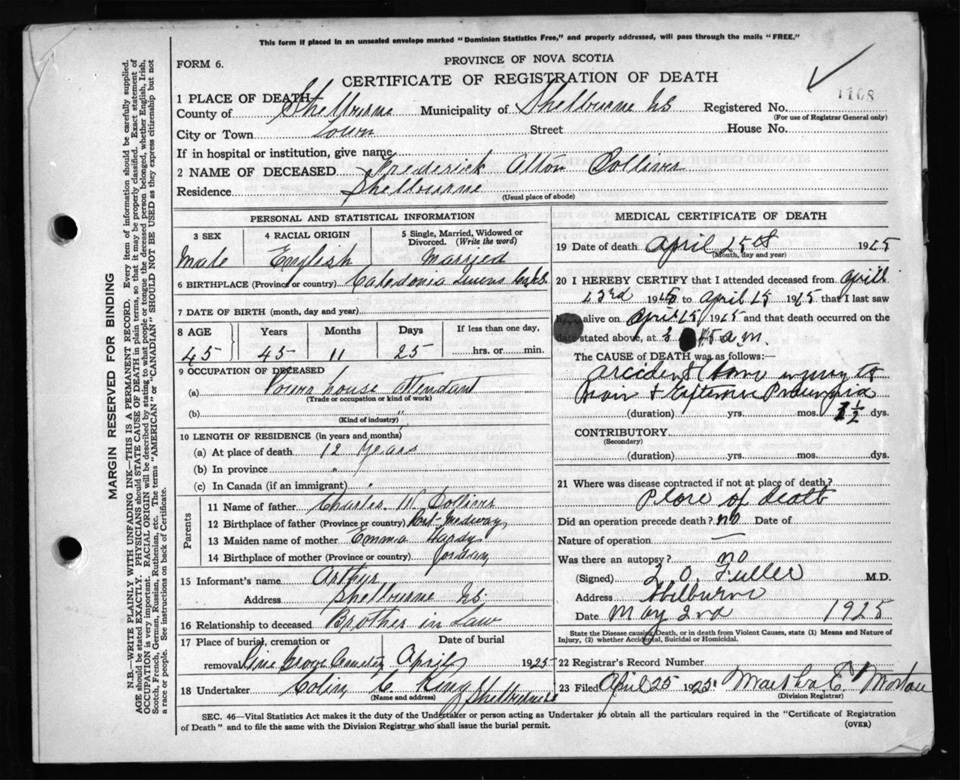 This form if placed in an unsealed envelope marked "Dominion Statistics Free," and properly addressed, will pass through the mails "FREE."
FORM 6.
PROVINCE OF NOVA SCOTIA
CERTIFICATE OF REGISTRATION OF DEATH
1168
1 PLACE OF DEATH—
County of Shelburne Municipality of Shelburne NS Registered No.
(For use of Registrar General only)
City or Town Town Street House No.
If in hospital or institution, give name
2 NAME OF DECEASED Frederick Alton Collins
Residence Shelbourne
(Usual place of abode)
PERSONAL AND STATISTICAL INFORMATION
3 SEX
Male
4 RACIAL ORIGIN
English
5 Single, Married, Widowed or
Divorced. (Write the word)
Married
6 BIRTHPLACE (Province or country) Caledonia
7 DATE OF BIRTH (month, day and year)
8 AGE Years Months Days If less than one day.
45 45 11 25 hrs. or min.
9 OCCUPATION OF DECEASED
(a) house Attendant
(Trade or occupation or kind of work)
(b)
(Kind of industry)
10 LENGTH OF RESIDENCE (in years and months)
(a) At place of death 12 years
(b) In province "
(c) In Canada (if an immigrant) "
Parents
11 Name of father Charles W. Collins
12 Birthplace of father (Province or country) Port Medway
13 Maiden name of mother Emma Hardy
14 Birthplace of mother (Province or country) Jordan
15 Informant's name Arthur
Address Shelbourne NS
16 Relationship to deceased Brother in Law
17 Place of burial, cremation or
removal Pine Grove Cemetery
Date of burial
April 1925
18 Undertaker Colin C. King Shelburne
(Name and address)
MEDICAL CERTIFICATE OF DEATH
19 Date of death April 25th 1925
(Month, day and year)
20 I HEREBY CERTIFY that I attended deceased from April
23rd 1925 to April 25 1925 that I last saw
him alive on April 25 1925 and that death occurred on
date stated above, at 3 a.m.
The CAUSE of DEATH was as follows:—
accident injury to
&
Pneumonia
(duration) yrs. mos. 1½ dys.
CONTRIBUTORY
(Secondary)
(duration) yrs. mos. dys.
21 Where was disease contracted if not at place of death?
Place of death
Did an operation precede death? no Date of
Nature of operation —
Was there an autopsy? no
(Signed) L. O. Fuller M.D.
Address Shelburne
Date May 2nd 1925
State the Disease causing Death, or in death from Violent Causes, state (1) Means and Nature of
Injury, (2) whether Accidental, Suicidal or Homicidal.
22 Registrar's Record Number
23 Filed April 25 1925 Martha E.
(Division Registrar)
SEC. 46—Vital Statistics Act makes it the duty of the Undertaker or person acting as Undertaker to obtain all the particulars required in the "Certificate of Registration
of Death" and to file the same with the Division Registrar who shall issue the burial permit.
(OVER)
MARGIN RESERVED FOR BINDING
N.B.—WRITE PLAINLY WITH UNFADING INK—THIS IS A PERMANENT RECORD. Every item of information should be carefully supplied.
AGE should be stated EXACTLY. PHYSICIANS should STATE CAUSE OF DEATH in plain terms, so that it may be properly classified. Exact statement of
OCCUPATION is very important. RACIAL ORIGIN will be described by stating to what people or tongue the deceased person belonged, whether English, Irish,
Scotch, French, German, Russian, Ruthenian, etc. The terms "AMERICAN" or "CANADIAN" SHOULD NOT BE USED as they express citizenship but not
a race or people. See instructions on back of Certificate.